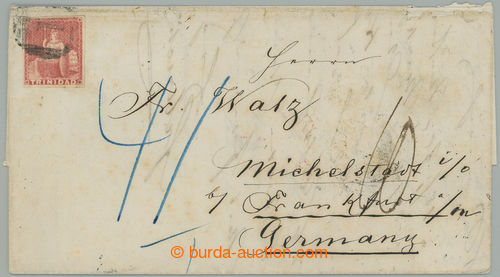 TRINIDAD
Herrn
Fr. Walz
41
10
Michelstadt i/o
b/ Frankfurt a/m
Germany
© burda-auction.com